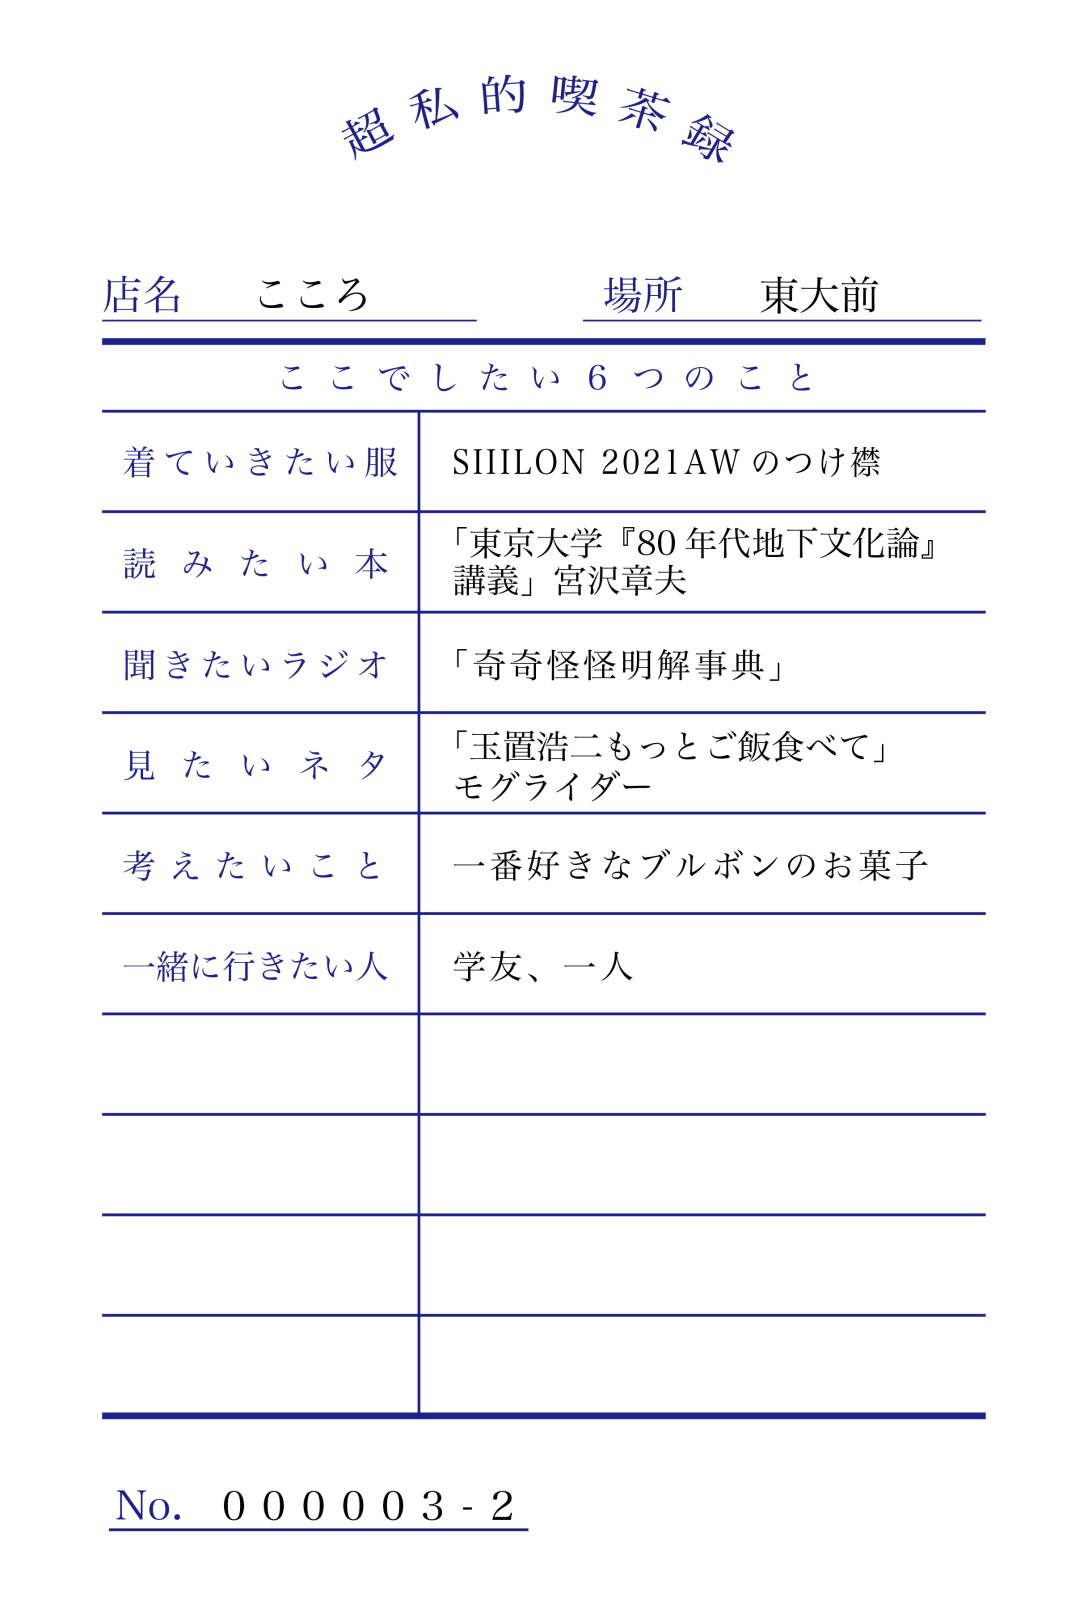 超私的喫茶録
店名 こころ 場所 東大前
ここでしたい6つのこと
着ていきたい服 SIIILON 2021AWのつけ襟
読みたい本 「東京大学『80年代地下文化論』
講義」宮沢章夫
聞きたいラジオ 「奇奇怪怪明解事典」
見たいネタ 「玉置浩二もっとご飯食べて」
モグライダー
考えたいこと 一番好きなブルボンのお菓子
一緒に行きたい人 学友、一人
No. 000003-2